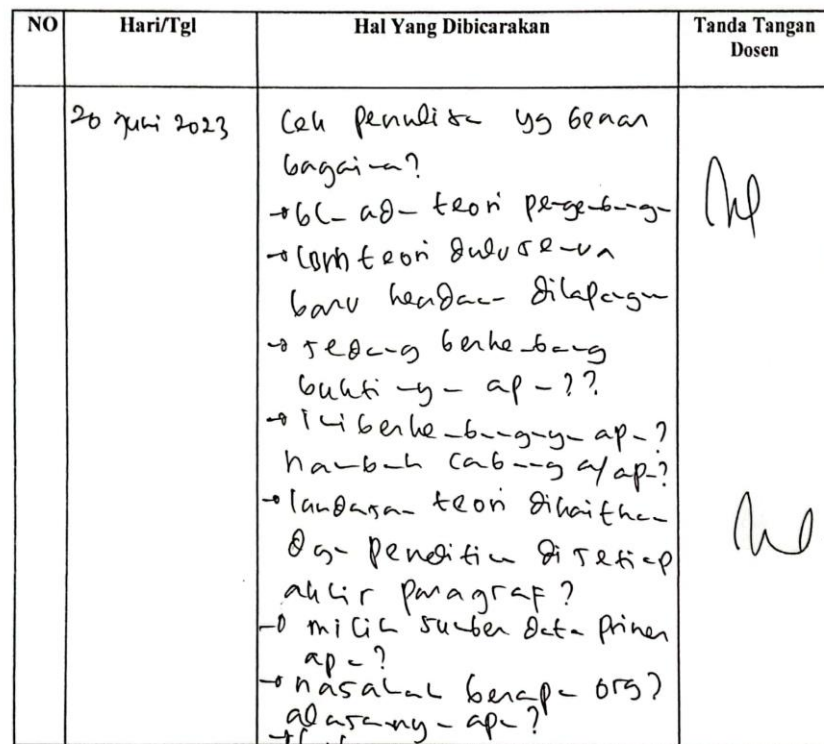 NO Hari/Tgl Hal Yang Dibicarakan Tanda Tangan
Dosen
20 Juni 2023 Cek penulisan yg benar
bagaimana?
→ teori
→ teori dulu semua
baru keadaan dilapangan
→ sedang berkembang
buktinya apa??
→ berkembangnya apa?
nambah cabang a/ apa?
→ landasan teori dikaitkan
dgn penelitian disetiap
akhir paragraf?
→ sumber data primer
apa?
→ berapa org?
alasannya apa?